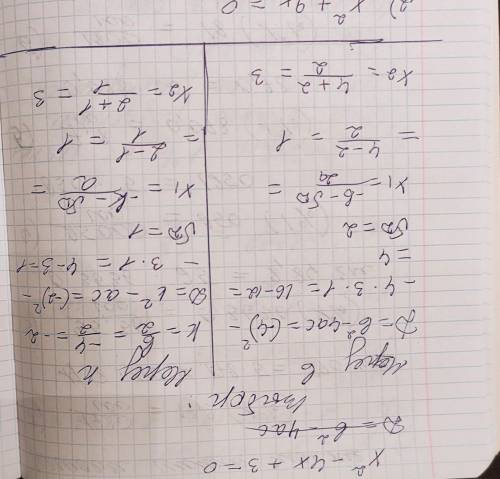 x² - 4x + 3 = 0
D = b² - 4ac
Выбор:
Через b
D = b² - 4ac = (-4)² -
- 4 · 3 · 1 = 16 - 12 =
= 4
√D = 2
x₁ = -b - √D / 2a =
= 4 - 2 / 2 = 1
x₂ = 4 + 2 / 2 = 3
Через k
k = b/2 = -4/2 = -2
D = k² - ac = (-2)² -
- 3 · 1 = 4 - 3 = 1
√D = 1
x₁ = -k - √D / a =
= 2 - 1 / 1 = 1
x₂ = 2 + 1 / 1 = 3
2) x² + 9x = 0